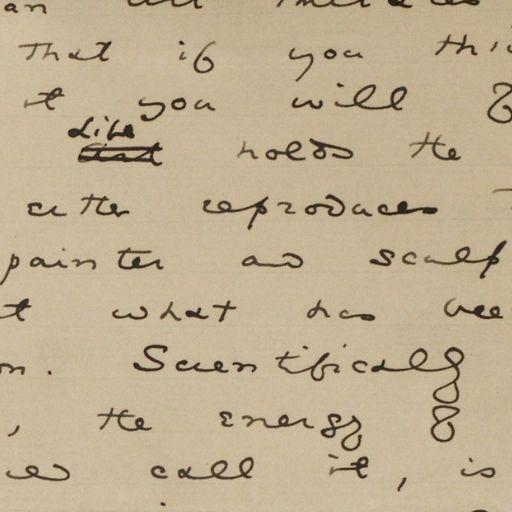 an all
that if you thi
it you will
Life
holds the
either reproduces
painter and sculp
t what has bee
on. Scientifically
, the energy
we call it, is